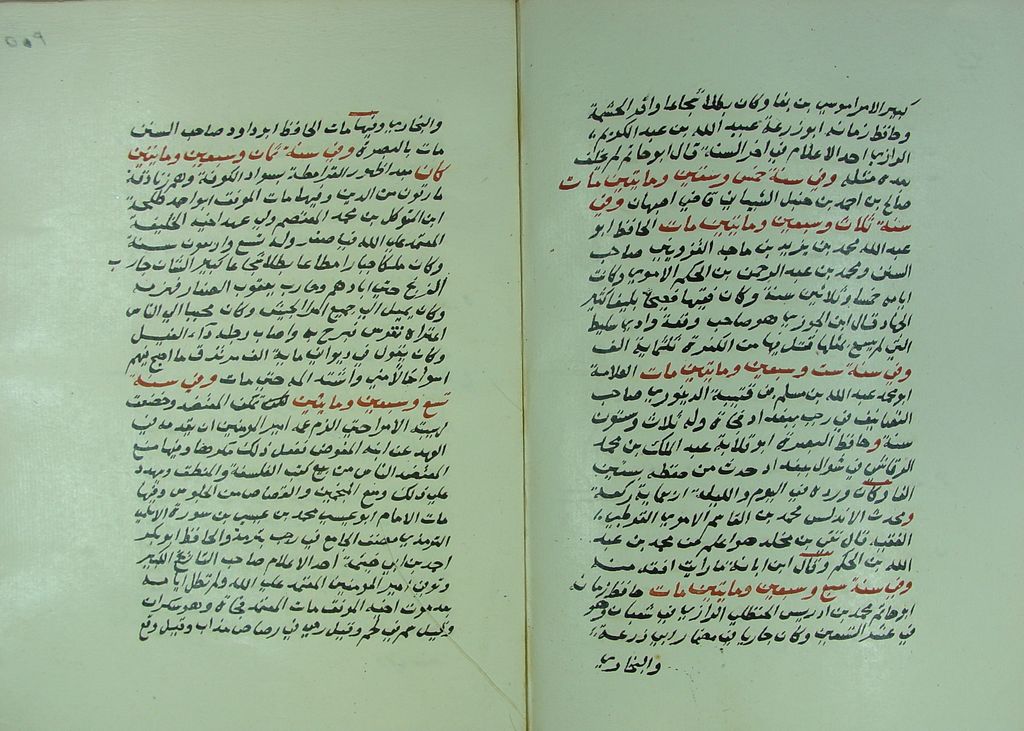 كبير الامرا موسى بن بغا وكان بطلا شجاعا وافر الحشمة
وحافظ زمانه ابو زرعة عبيد الله بن عبد الكريم
الرازي احد الاعلام في اخر السنة قال ابو حاتم لم يخلف
بعده مثله وفي سنة خمس وستين وماتين مات
صالح بن احمد بن حنبل الشيباني قاضي اصبهان وفي
سنة ثلاث وسبعين وماتين مات الحافظ ابو
عبد الله محمد بن يزيد بن ماجه القزويني صاحب
السنن ومحمد بن عبد الرحمن بن الحكم الاموي وكانت
ايامه خمسا وثلاثين سنة وكان فقيها فصيحا بليغا كثير
الجهاد قال ابن الجوزي هو صاحب وقعة وادي سليط
التي لم يسمع بمثلها قتل فيها من الكفرة ثلثماية الف
وفي سنة ست وسبعين وماتين مات العلامة
ابو محمد عبد الله بن مسلم بن قتيبة الدينوري صاحب
التصانيف في رجب ببغداد فجاة وله ثلاث وستون
سنة وحافظ البصرة ابو قلابة عبد الملك بن محمد
الرقاشي في شوال ببغداد حدث من حفظه بستين
الفا وكان ورده في اليوم والليلة اربعماية ركعة
ومحدث الاندلس محمد بن القاسم الاموي القرطبي
الفقيه قال بقي بن مخلد هو اعلم من محمد بن عبد
الله بن الحكم وقال ابن ابانة ما رايت افقه منه
وفي سنة سبع وسبعين وماتين مات حافظ زمانه
ابو حاتم محمد بن ادريس الحنظلي الرازي في شعبان وهو
في عشر التسعين وكان جاريا في مضمار ابي زرعة
والبخاري
والبخاري وفيها مات الحافظ ابو داود صاحب السنن
مات بالبصرة وفي سنة ثمان وسبعين وماتين
كان مبدا ظهور القرامطة بسواد الكوفة وهم زنادقة
مارقون من الدين وفيها مات الموفق ابو احمد طلحة
ابن المتوكل بن محمد المعتصم ولي عهد اخيه الخليفة
المعتمد على الله في صفر وله تسع واربعون سنة
وكان ملكا جبارا مطاعا بطلا شجاعا كبير الشان حارب
الزنج حتى ابادهم وحارب يعقوب الصفار فهزمه
وكان يميل اليه جميع امرا الجيش وكان محببا الى الناس
اعتراه نقرس فبرح به واصاب رجله داء الفيل
وكان يقول في ديواني ماية الف مرتزق ما اصبح فيهم
اسوا حالا مني واشتد المه حتى مات وفي سنة
تسع وسبعين وماتين تمكن المعتضد وخضعت
لهيبته الامرا حتى الزم عمه امير المومنين ان يقدمه في
العهد عن ابنه المفوض ففعل ذلك مكرها وفيها منع
المعتضد الناس من بيع كتب الفلسفة والمنطق وهدد
على ذلك ومنع المنجمين والقصاص من الجلوس وفيها
مات الامام ابو عيسى محمد بن عيسى بن سورة
الترمذي مصنف الجامع في رجب بترمذ والحافظ ابو بكر
احمد بن ابي خيثمة احد الاعلام صاحب التاريخ الكبير
وتوفي امير المومنين المعتمد على الله ولم تطل ايامه
بعد موت اخيه الموفق مات المعتمد فجاة وهو سكران
وقيل سم في لحم وقيل رمي في رصاص مذاب وقيل وقع